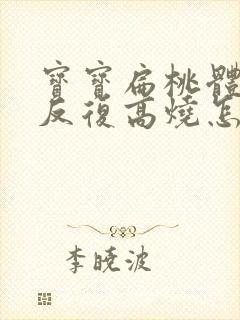 寶寶扁桃體
反復高燒怎
李曉波